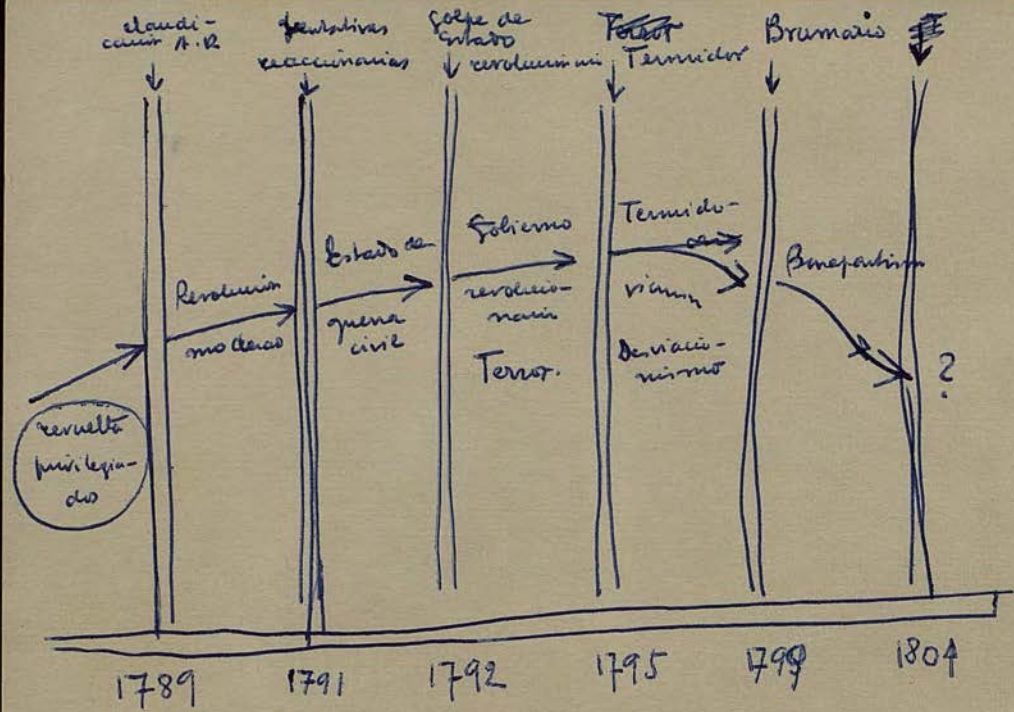 claudi-
cación A.R
tentativas
reaccionarias
golpe de
Estado
revolucionario
Termidor
Brumario
Revolución
moderad
Estado de
guerra
civil
Gobierno
revolucio-
nario
Terror.
Termido-
rianism
Desviacio-
nismo
Bonapartism
?
revuelta
privilegia-
dos
1789
1791
1792
1795
1799
1804